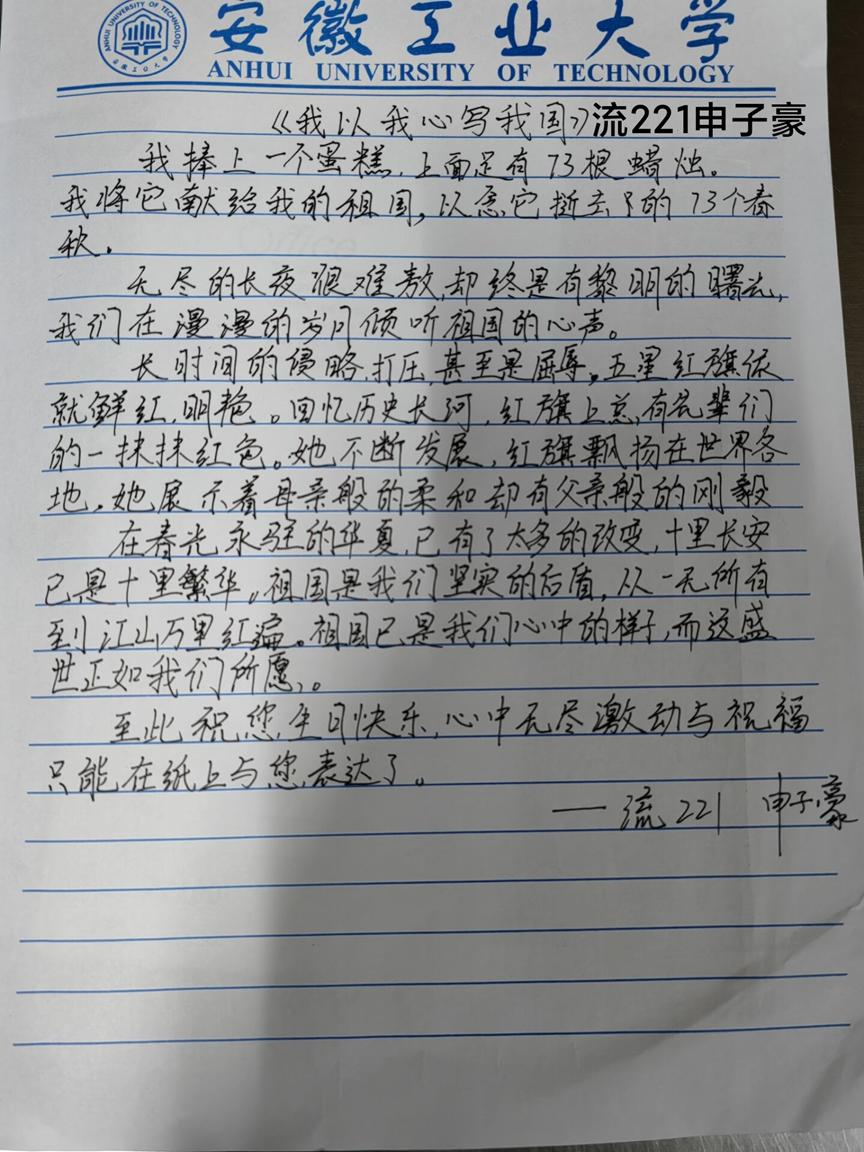 安徽工业大学
ANHUI UNIVERSITY OF TECHNOLOGY
《我以我心写我国》流221申子豪
我捧上一个蛋糕,上面足有73根蜡烛。
我将它献给我的祖国,以念它挺立的73个春
秋。
无尽的长夜很难熬,却终是有黎明的曙光,
我们在漫漫的岁月倾听祖国的心声。
长时间的侵略,打压,甚至是屈辱。五星红旗依
就鲜红,明艳。回忆历史长河,红旗上总有先辈们
的一抹抹红色。她不断发展,红旗飘扬在世界各
地,她展示着母亲般的柔和却有父亲般的刚毅
在春光永驻的华夏,已有了太多的改变,十里长安
已是十里繁华。祖国是我们坚实的后盾,从一无所有
到江山万里红遍。祖国已是我们心中的样子,而这盛
世正如我们所愿。
至此祝您生日快乐,心中无尽激动与祝福
只能在纸上与您表达了。
——流221 申子豪